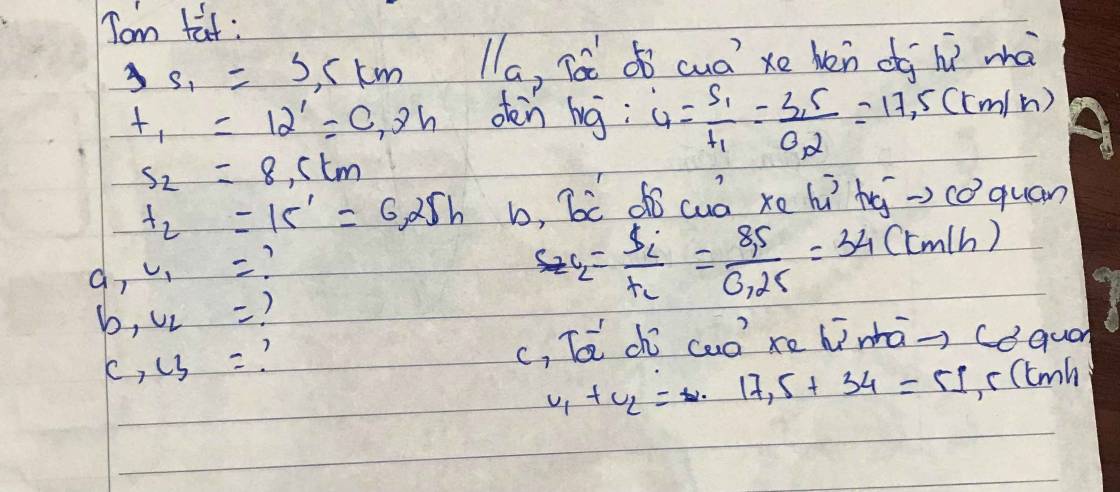 Tóm tắt:
s₁ = 3,5 km
t₁ = 12' = 0,2h
s₂ = 8,5 km
t₂ = 15' = 0,25h
a, v₁ = ?
b, v₂ = ?
c, v₃ = ?
//a, Tốc độ của xe trên đg từ nhà
đến trg : v₁ = s₁/t₁ = 3,5/0,2 = 17,5 (km/h)
b, Tốc độ của xe từ trg → cơ quan
v₂ = s₂/t₂ = 8,5/0,25 = 34 (km/h)
c, Tốc độ của xe từ nhà → cơ quan
v₁ + v₂ = 17,5 + 34 = 51,5 (km/h